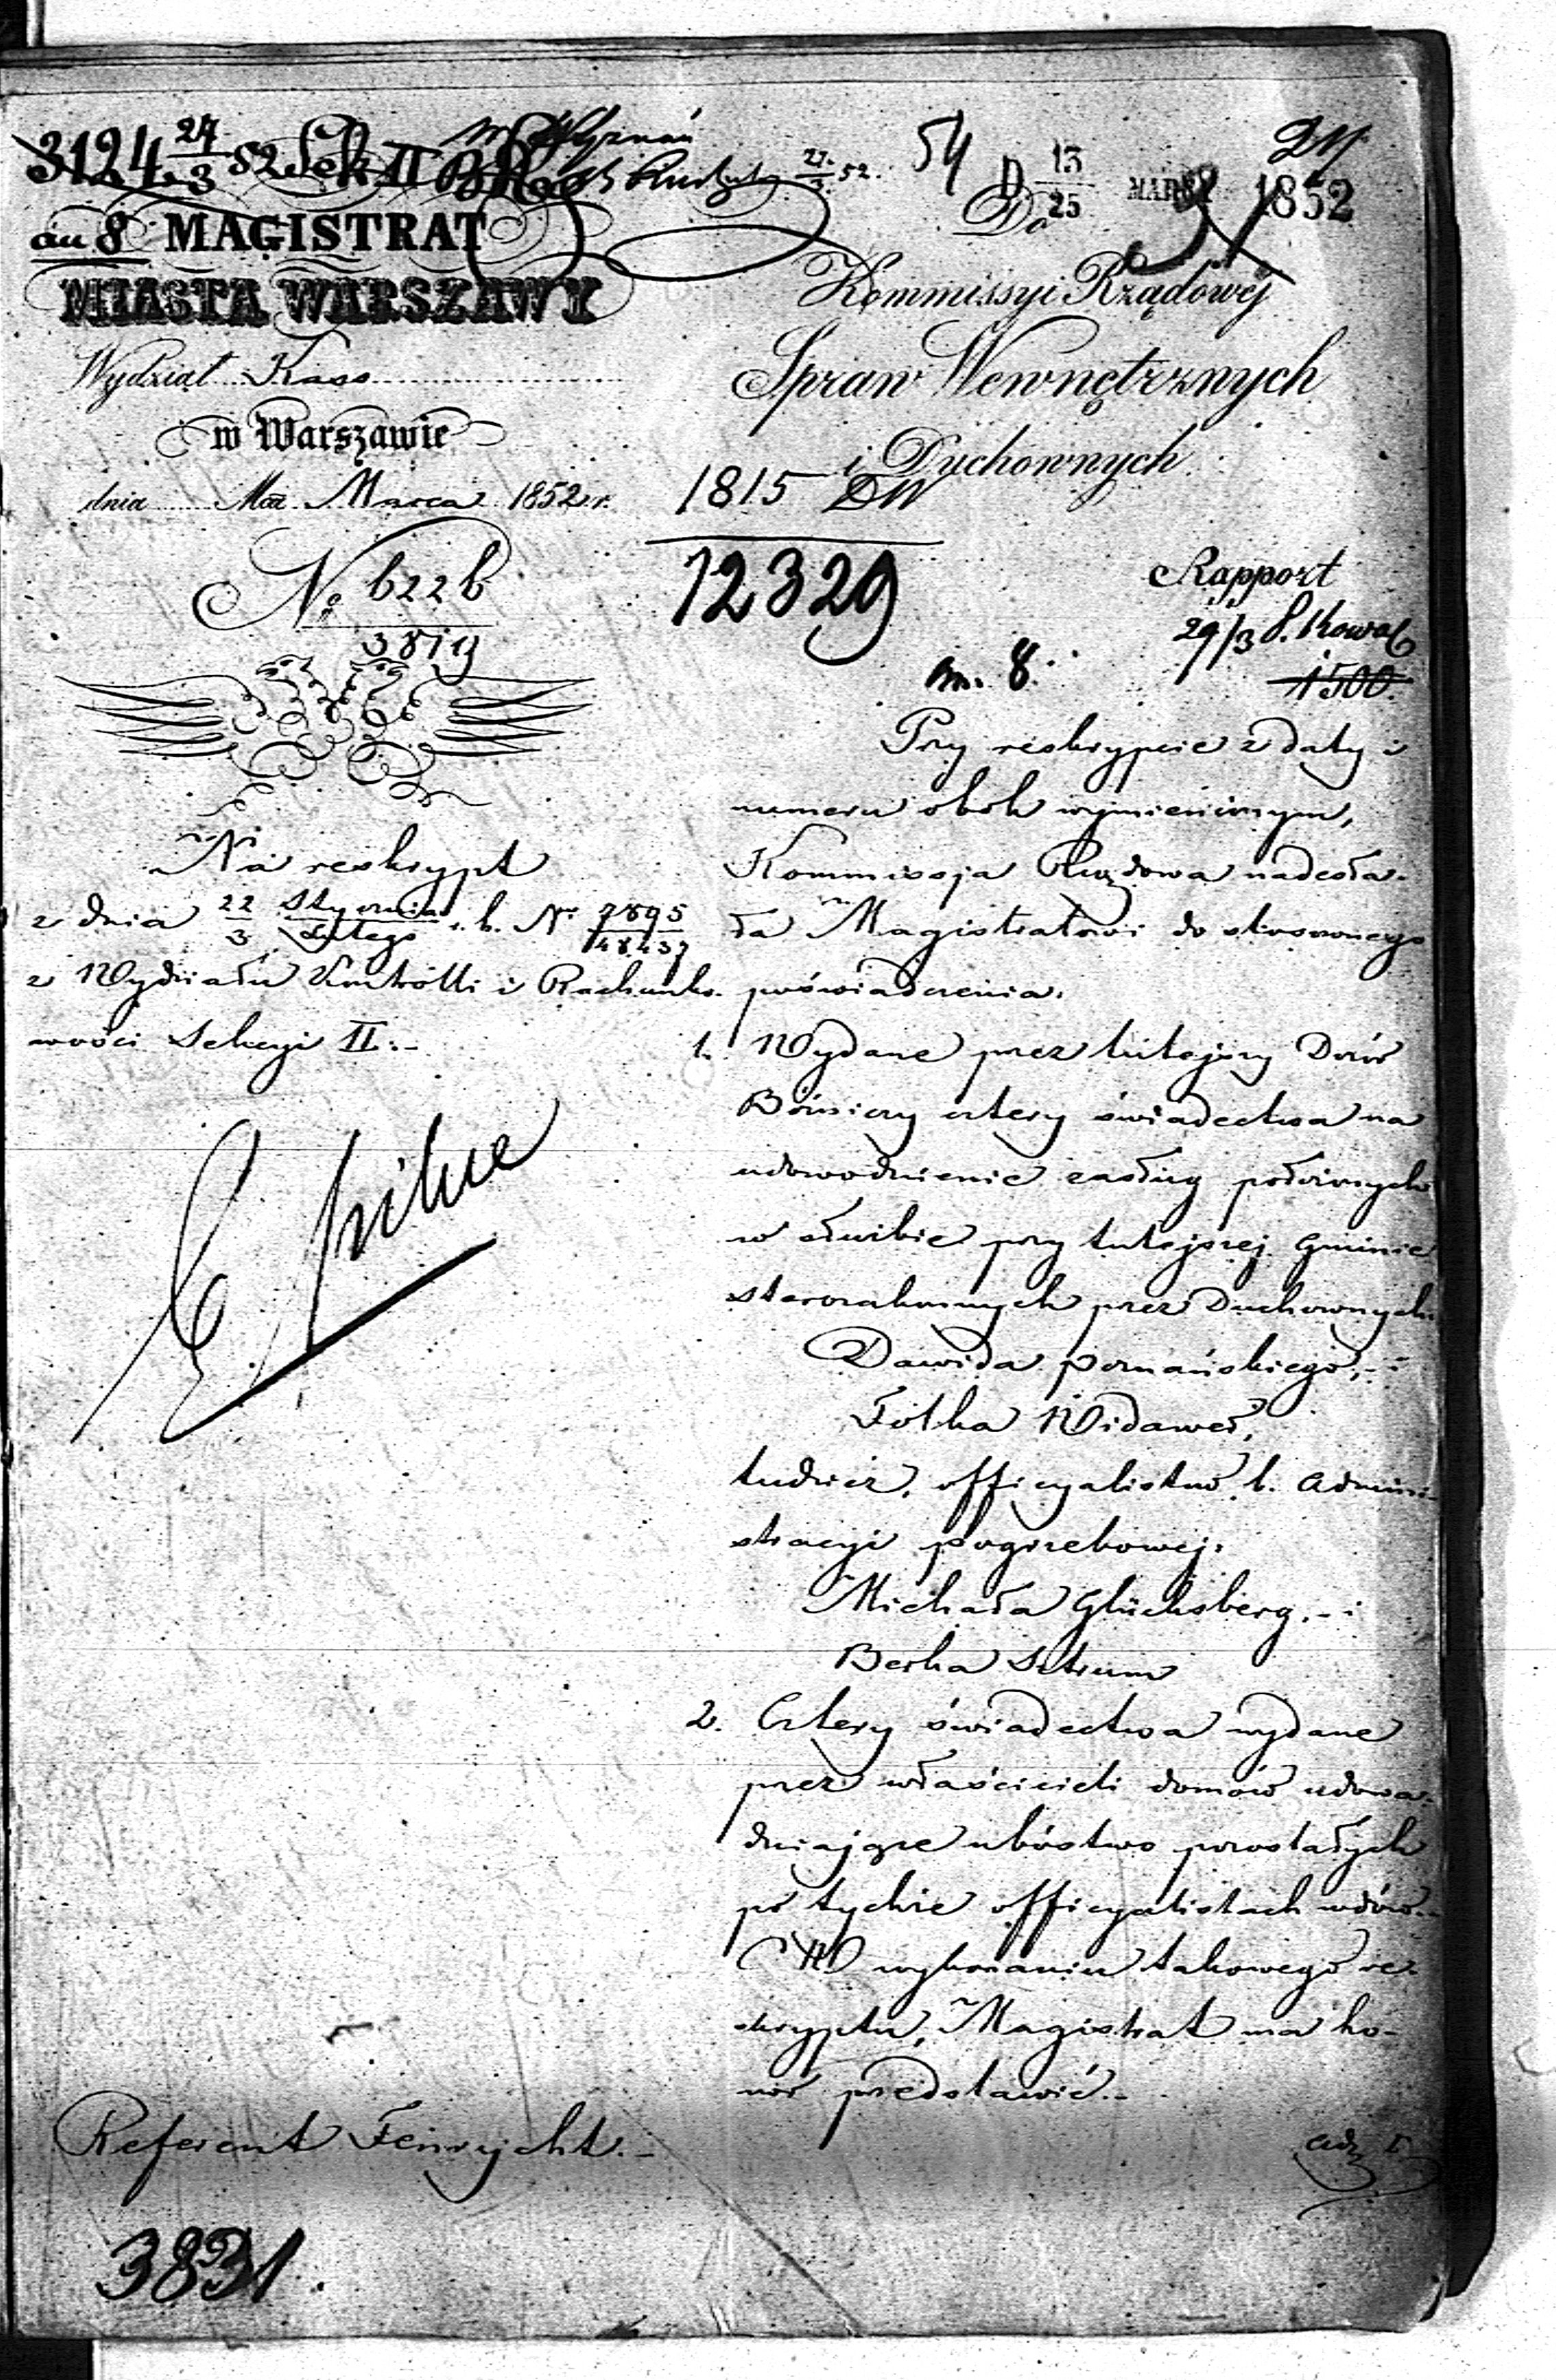 3124 24/3 52 Sek II
54
D 13/25 MARCA 1852
24
au 8
MAGISTRAT
MIASTA WARSZAWY
Wydział Kass
w Warszawie
dnia Marca 1852 r.
No 6226
3819
Do
Kommissyi Rządowéj
Spraw Wewnętrznych
i Duchownych
1815 DW
12329
Rapport
29/3
1500.
m. 8.
Na reskrypt
z dnia 22/3 Stycznia/Lutego r. b. No 2895/48437
z Wydziału Kontrolli i Rachunko-
wości Sekcyi II.-
Przy reskrypcie z daty i
numeru obok wymienionym,
Kommissja Rządowa nadesła-
ła Magistratowi do stosownego
poświadczenia.
1. Wydane przez tutejszy Dozór
Bóżniczy cztery świadectwa na
udowodnienie zasług położonych
w służbie przy tutejszej Gminie
starozakonnych przez Duchownych
Dawida Poznańskiego, - i
Folka Widaweł,
tudzież, officyalistów b. Admini-
stracyi pogrzebowej.
Michała Glücksberg. - i
Berka Sztrum
2. Cztery świadectwa wydane
przez właścicieli domów udowa-
dniające ubóstwo pozostałych
po tychże officyalistach wdów.-
W wykonaniu takowego re-
skryptu, Magistrat ma ho-
nor przedstawić.-
Referent Fenrycht.-
3831.